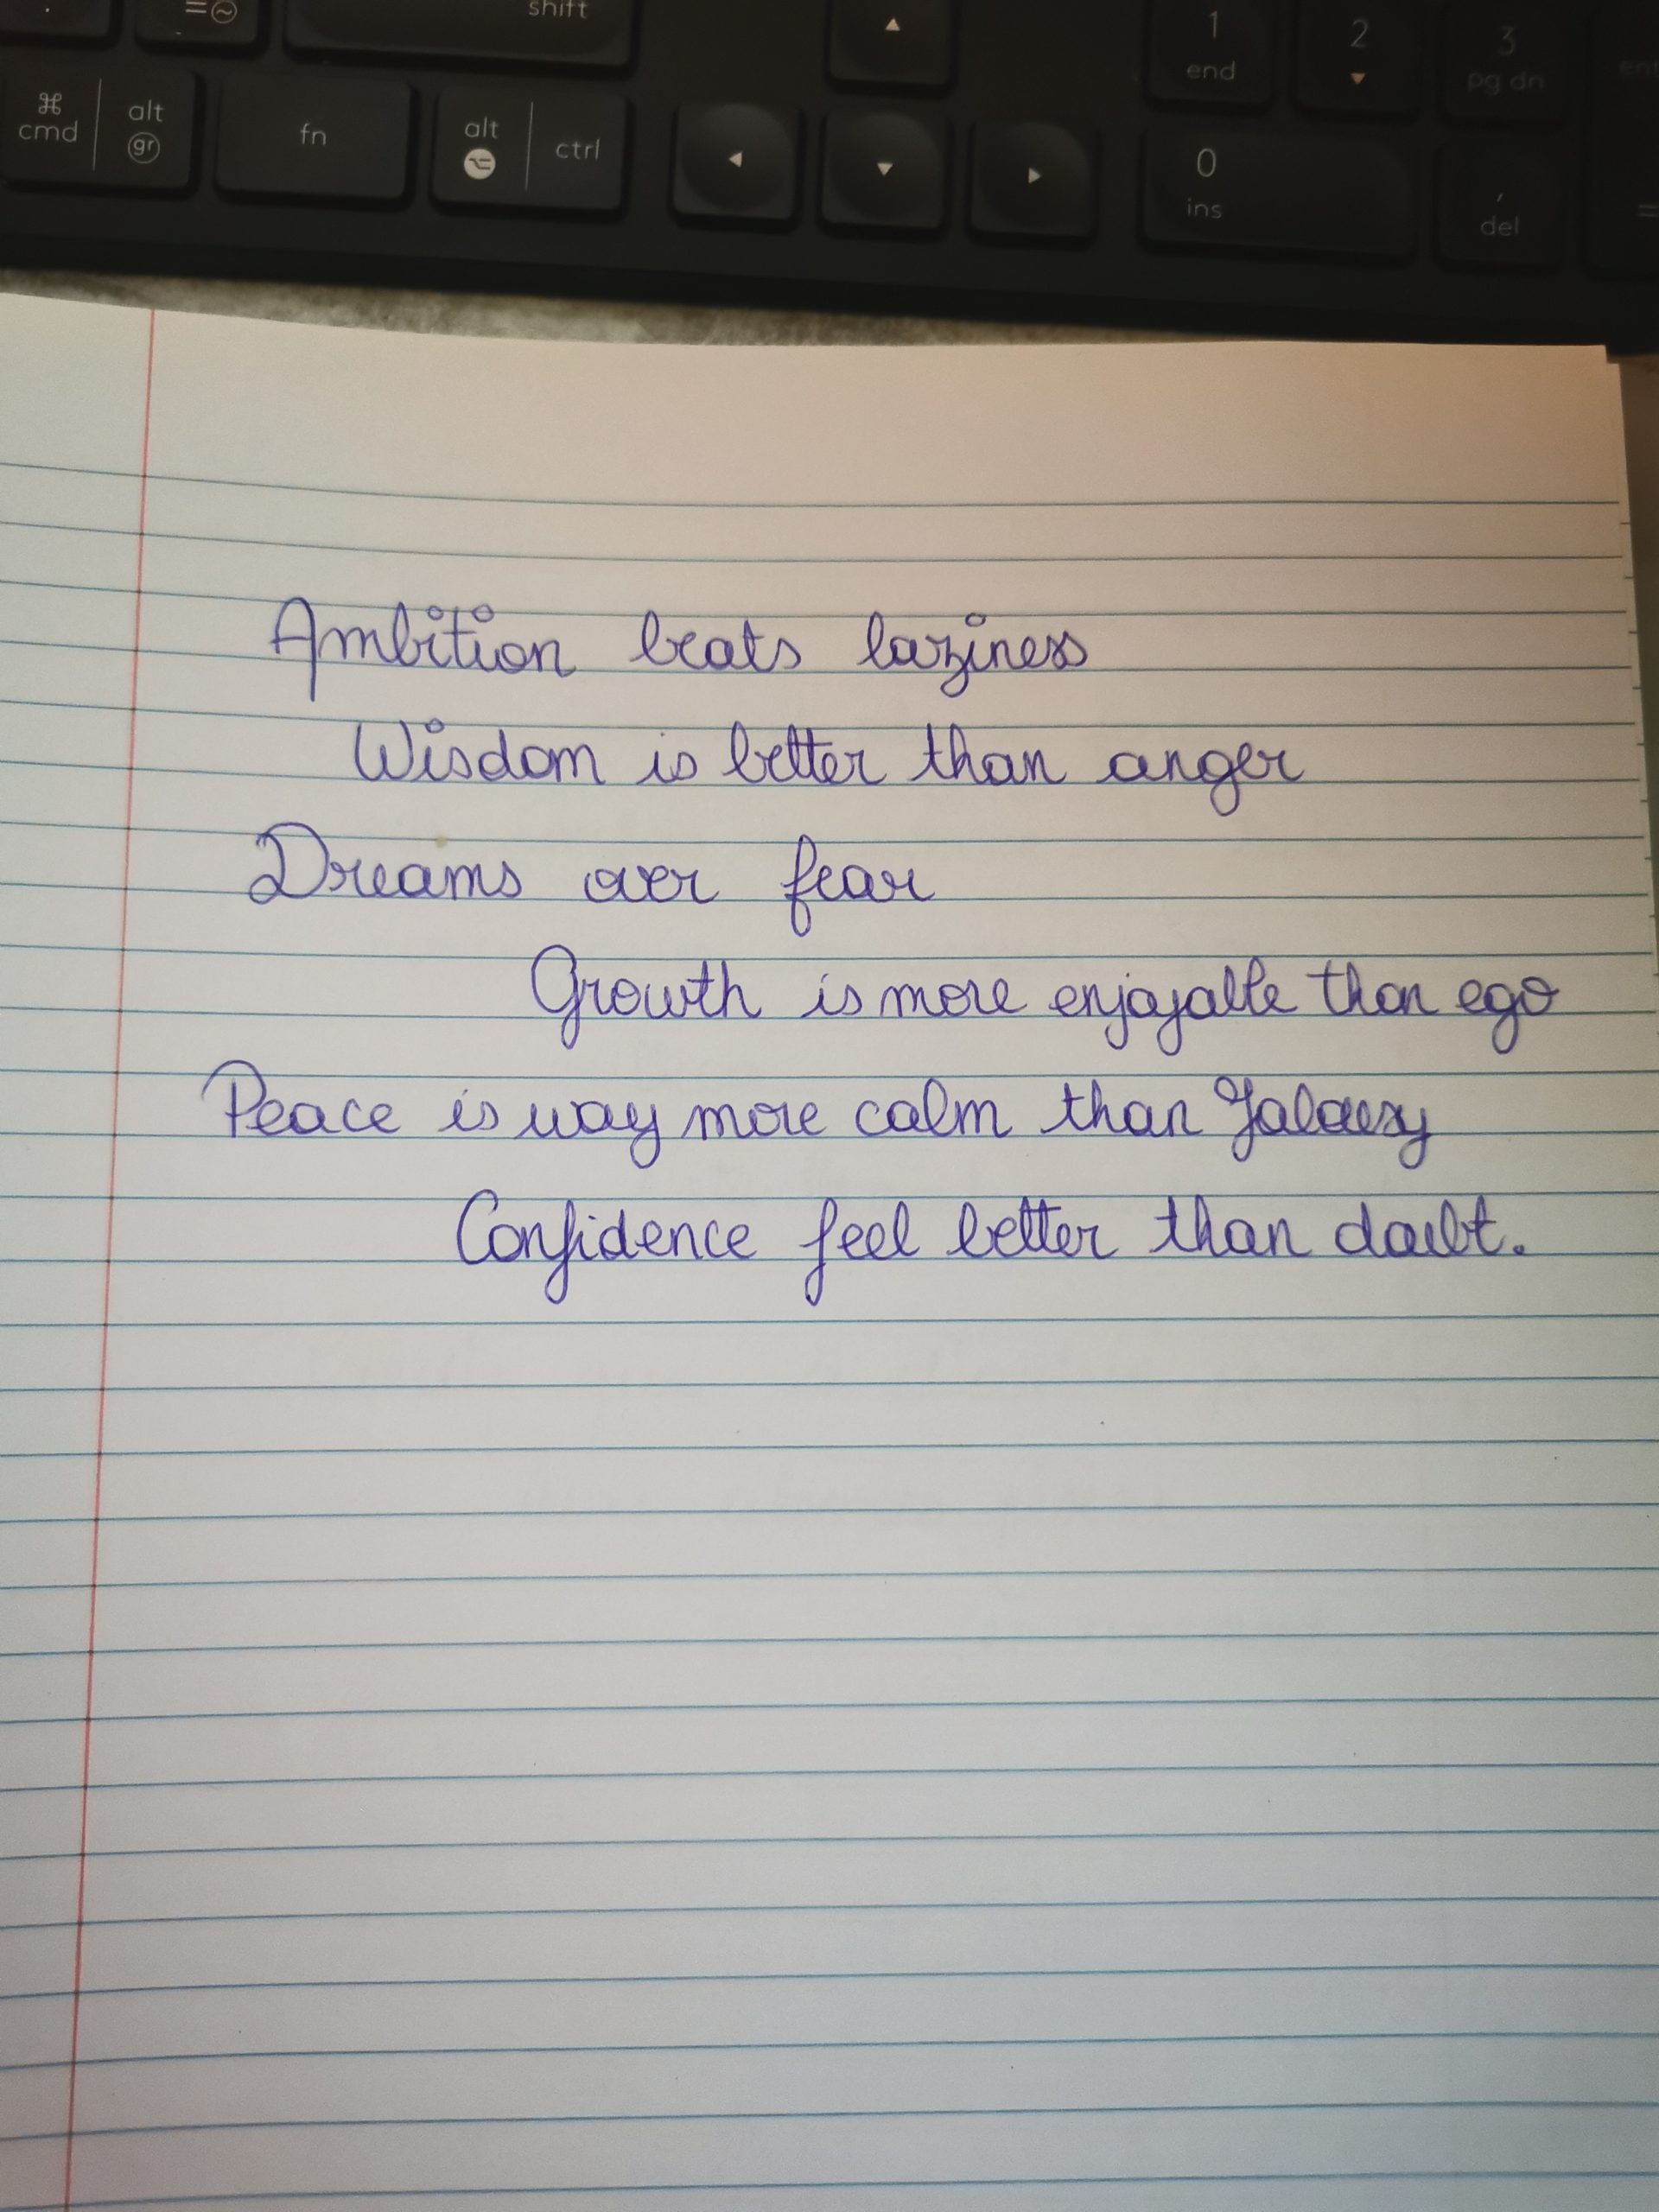 shift
1 2 3
end pg dn
cmd alt gr fn alt ctrl
0
ins del
Ambition beats laziness
Wisdom is better than anger
Dreams over fear
Growth is more enjoyable than ego
Peace is way more calm than
Confidence feel better than doubt.